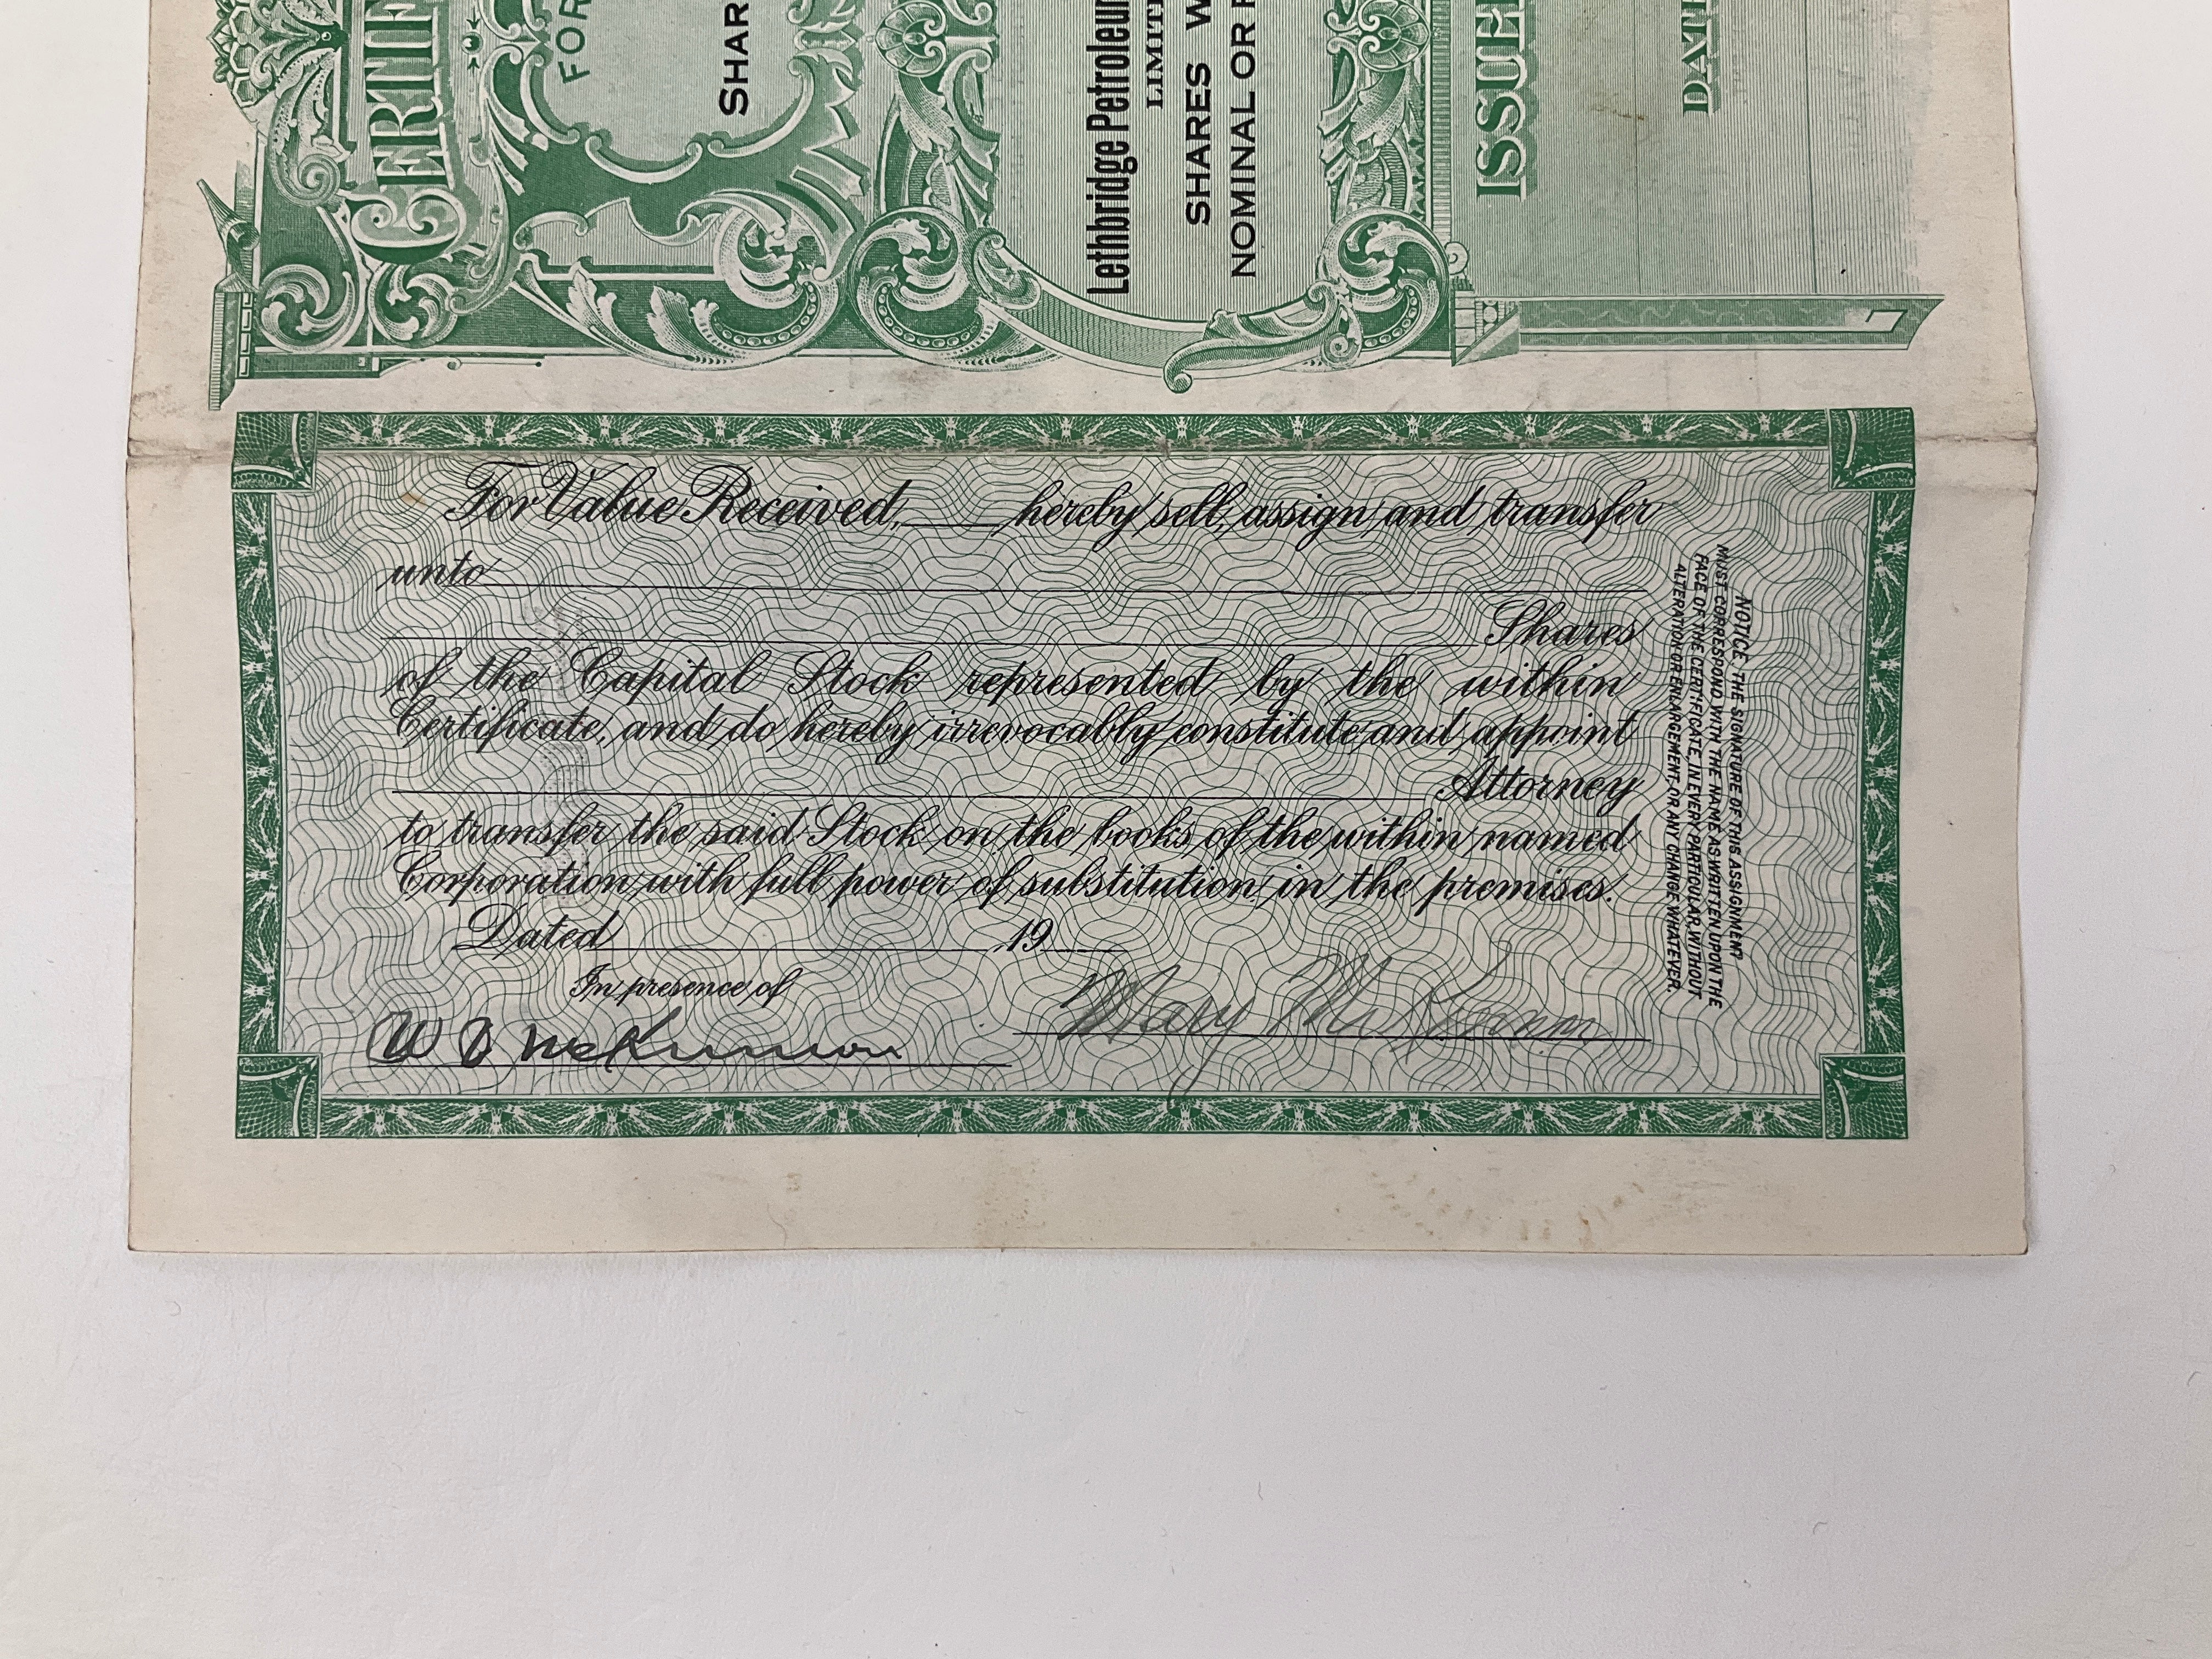 CERTIF
FOR
SHAR
Lethbridge Petroleum
LIMIT
SHARES W
NOMINAL OR
ISSUE
DAT
For Value Received, ____ hereby sell, assign and transfer
unto
Shares
of the Capital Stock represented by the within
Certificate, and do hereby irrevocably constitute and appoint
Attorney
to transfer the said Stock on the books of the within named
Corporation with full power of substitution in the premises.
Dated 19
In presence of
W D McKinnon
Mary McKinnon
NOTICE. THE SIGNATURE OF THIS ASSIGNMENT
MUST CORRESPOND WITH THE NAME AS WRITTEN UPON THE
FACE OF THE CERTIFICATE, IN EVERY PARTICULAR, WITHOUT
ALTERATION OR ENLARGEMENT, OR ANY CHANGE WHATEVER.